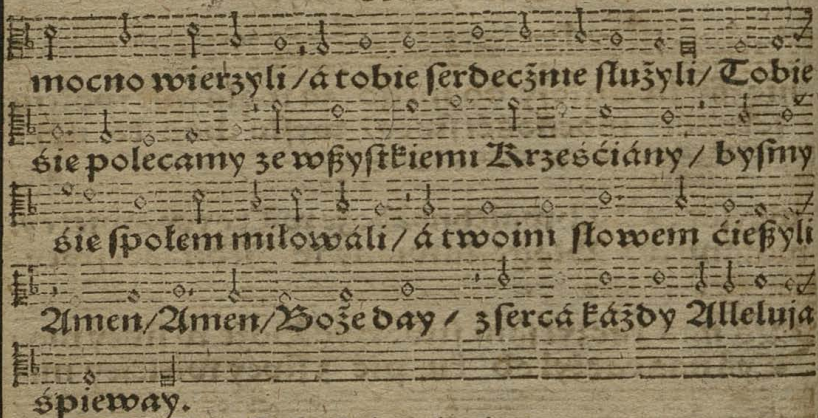 mocno wierzyli / á tobie ſerdecżnie ſlużyli / Tobie
śie polecamy ze wßyſtkiemi Krześćiány / byſmy
śie ſpołem miłowáli / á twoim ſłowem ćießyli
Amen / Amen / Boże day / z ſercá káżdy Alleluja
śpieway.